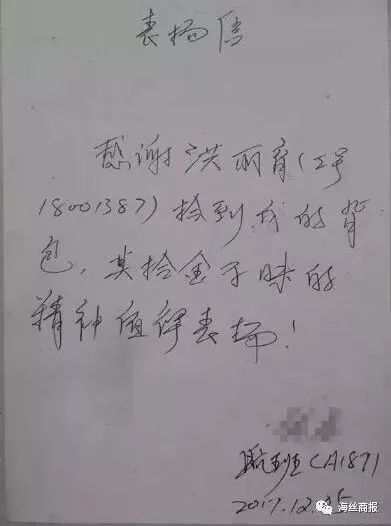 表扬信
感谢洪丽育（工号
18001387）捡到我的背
包，其拾金不昧的
精神值得表扬！
航班CA1871
2017.12.25
海丝商报